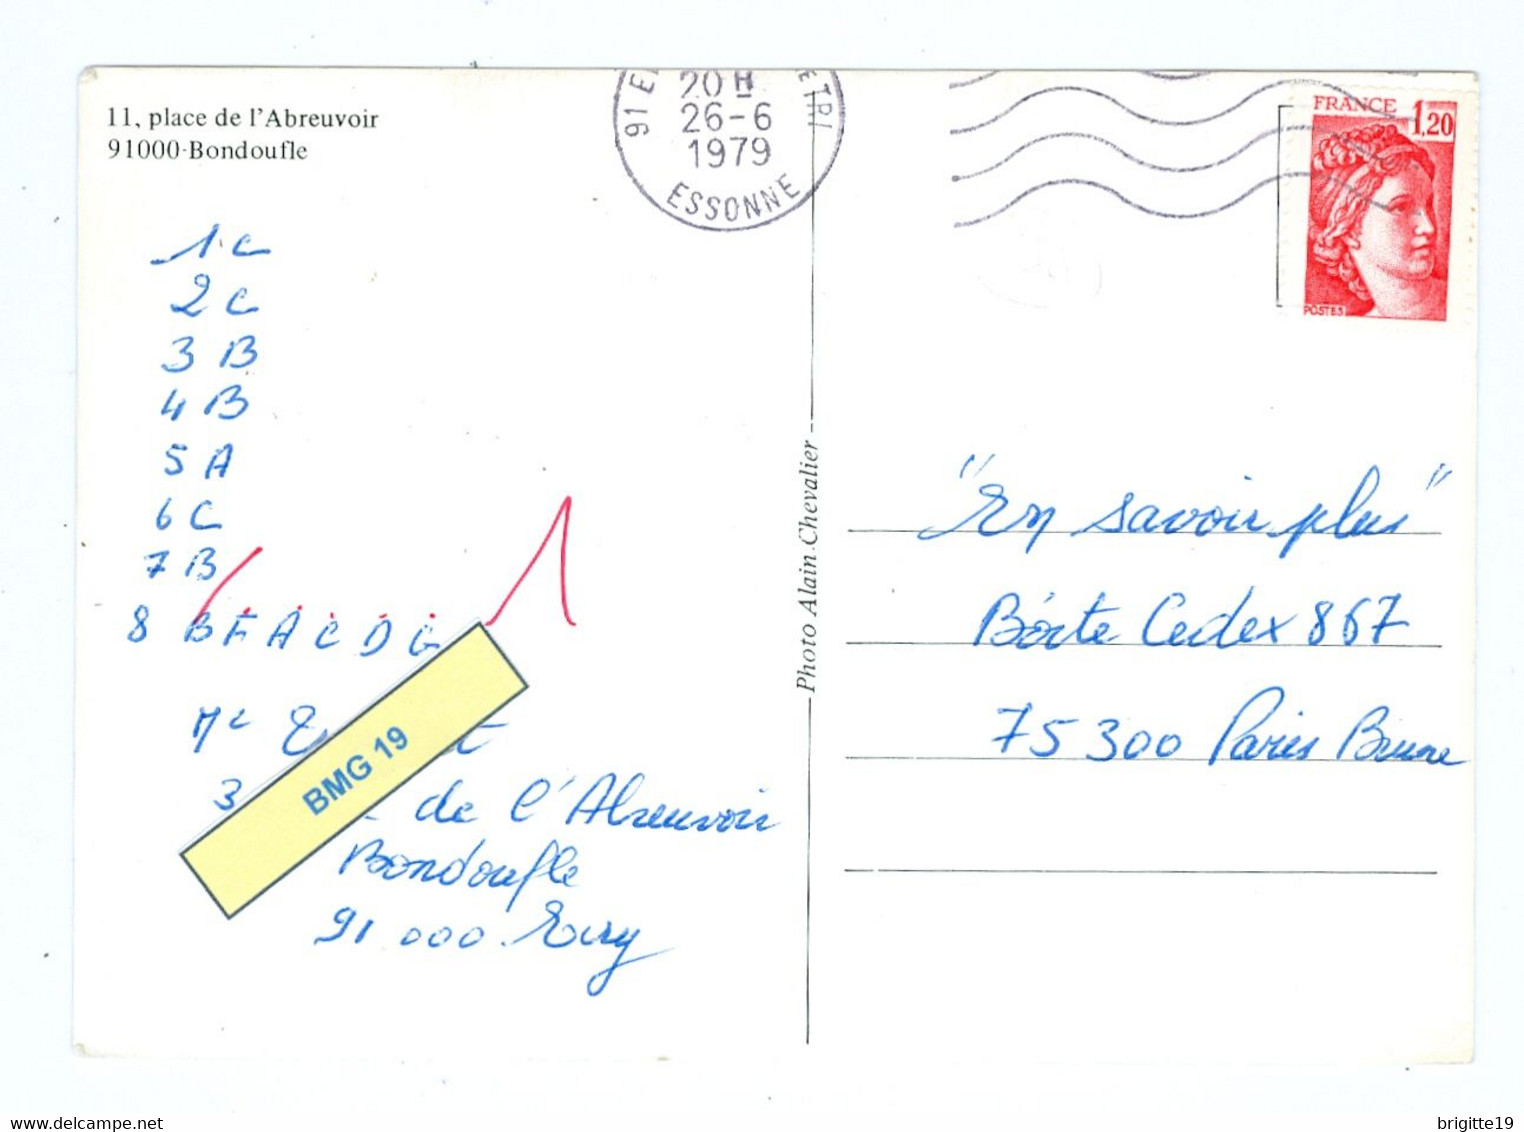 11, place de l'Abreuvoir
91000-Bondoufle
1 C
2 C
3 B
4 B
5 A
6 C
7 B
8 B F A C D G
BMG 19
3
de l'Abreuvoir
Bondoufle
91 000. Evry
Photo Alain Chevalier
91 E
20 H
26-6
1979
ESSONNE
FRANCE
1,20
POSTES
"En savoir plus"
Boîte Cedex 867
75 300 Paris Brune
delcampe.net
brigitte19